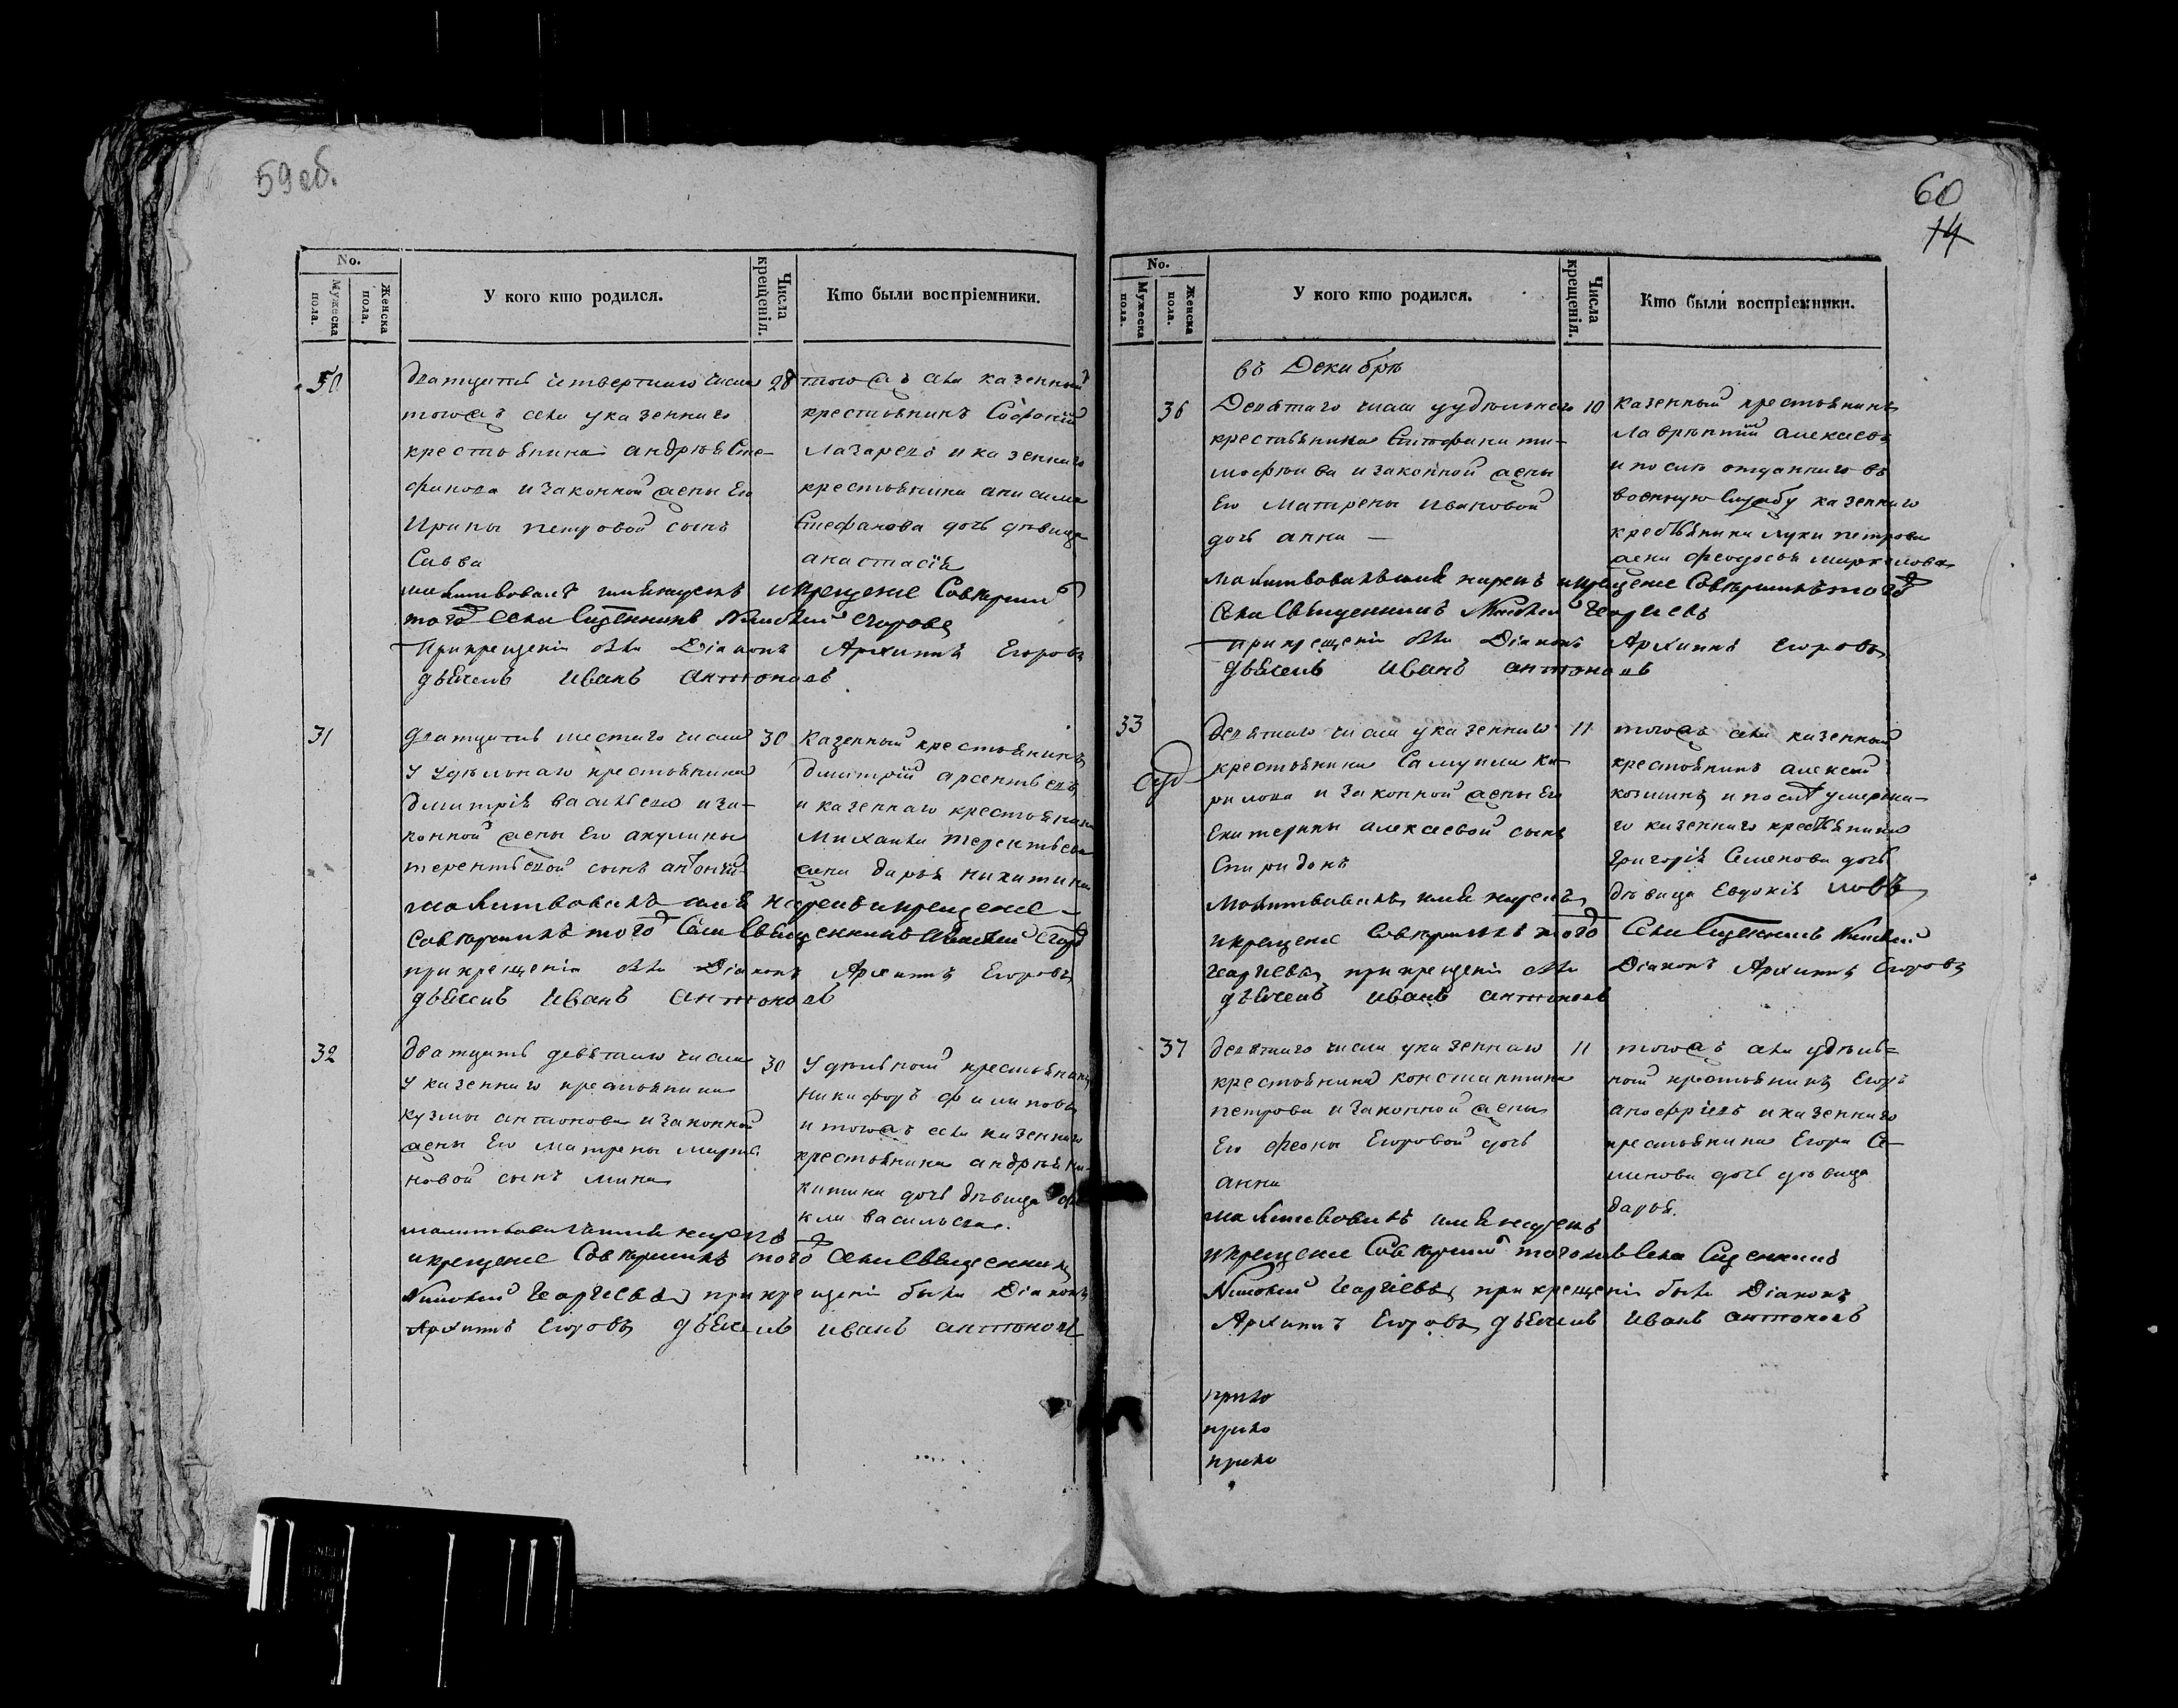 59 об.
No.
Мужеска пола.
Женска пола.
У кого кто родился.
Числа крещенія.
Кто были воспріемники.
30
дватцать четвертого числа
тогожъ села у казенного
крестьянина андрея Сте-
фанова и законной жены Его
Ирины петровой сынъ
Савва
28
тогожъ села казенный
крестьянинъ Софоній
Лазаревъ и казенного
крестьянина анисима
Стефанова дочь дѣвица
анастасія
молитвовалъ имя нарекъ и крещение Совершилъ
того Села Сщенникъ Николай Егоровъ
При крещеніи были Діаконъ Архипъ Егоровъ
дьячекъ Иванъ антоновъ
31
дватцать шестаго числа
у удѣльнаго крестьянина
Дмитрія васильева и за-
конной жены Его акулины
терентьевой сынъ антоній
30
Казенный крестьянинъ
Дмитрій арсентьевъ
и казеннаго крестьянина
Михаила терентьева
жена дарья никитина
молитвовалъ имя нарекъ и крещение
Совершилъ того Села Священникъ Николай Егоровъ
при крещеніи были Діаконъ Архипъ Егоровъ
дьячекъ Иванъ антоновъ
32
дватцать девятаго числа
у казенного крестьянина
кузмы антонова и законной
жены Его матрены марты
новой сынъ мина
30
Удѣльной крестьянинъ
никифоръ филиповъ
и тогожъ села казенного
крестьянина андрея ни-
китина дочь дѣвица
васильева.
молитвовалъ имя нарекъ
и крещение Совершилъ того Села Священникъ
Николай Георгіевъ при крещеніи были Діаконъ
Архипъ Егоровъ дьячекъ иванъ антоновъ
60
14
No.
Мужеска пола.
Женска пола.
У кого кто родился.
Числа крещенія.
Кто были воспріемники.
въ Декабрѣ
36
Девятаго числа у удѣльнаго
крестьянина Стефана ти-
мофѣива и законной жены
Его Матрены ивановой
дочь анна —
10
казенный крестьянинъ
Лаврентій алексѣевъ
и посля отданного въ
военную службу казенного
крестьянина луки петрова
жена феодосья
молитвовалъ имя нарекъ и крещение Совершилъ того
Села Священникъ Николай Георгіевъ
При крещеніи были Діаконъ Архипъ Егоровъ
дьячекъ иванъ антоновъ
33
девятаго числа у казенного
крестьянина Самуила Ки-
рилова и законной жены Его
Екатерины алексѣевой сынъ
Спиридонъ
11
тогожъ села казенный
крестьянинъ алексей
и послѣ умерша-
го казенного крестьянина
Григорія Семенова дочь
дѣвица Евдокія
молитвовалъ имя нарекъ
и крещение Совершилъ того Села Сщенникъ Николай
Георгіевъ при крещеніи были Діаконъ Архипъ Егоровъ
дьячекъ иванъ антоновъ
37
девятаго числа у казеннаго
крестьянина константина
петрова и законной жены
Его феоны Егоровой дочь
анна
11
тогожъ села удѣль-
ной крестьянинъ Егоръ
и казенного
крестьянина Егора Се-
минова дочь дѣвица
дарья.
молитвовалъ имя нарекъ
и крещение Совершилъ тогожъ Села Сщенникъ
Николай Георгіевъ при крещеніи были Діаконъ
Архипъ Егоровъ дьячекъ иванъ антоновъ